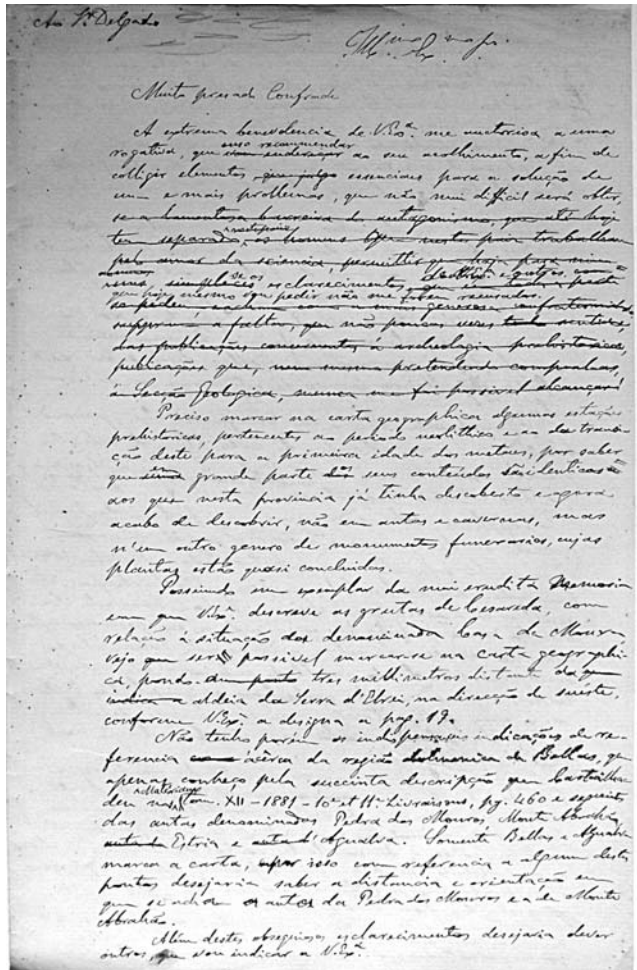 Ao Sr. Delgado
Illmo. Exmo. Snr.
Muito presado Confrade
A extrema benevolencia de V. Exª. me auctorisa a uma
rogativa, que ouso recommendar ao seu acolhimento, a fim de
colligir elementos, que julgo essenciaes para a solução de
um e mais problemas, que não mui difficil será obter,
se a lamentosa barreira do antagonismo, que até hoje
tem separado os homens que
pelo amor da sciencia, permittir que haja para mim
simplices esclarecimentos,
que hoje mesmo vou pedir não me forem recusados.
a falta, que não poucas vezes
das publicações concernentes á archeologia prehistorica,
publicações que, nem mesmo pretendendo compral-as,
á Secção Geologica, nunca me foi possivel alcançar!
Preciso marcar na carta geographica algumas estações
prehistoricas, pertencentes ao periodo neolithico e ao da transi-
ção deste para a primeira idade dos metaes, por saber
que em grande parte os seus conteúdos são identicos
aos que nesta provincia já tinha descoberto e agora
acabo de descobrir, não em antas e cavernas, mas
n'um outro genero de monumentos funerarios, cujas
plantas estão quasi concluidas.
Possuindo um exemplar da mui erudita Memoria
em que V. Exª. descreve as grutas de Cesareda, com
relação á situação da denominada Casa da Moura
vejo que será possivel marcar-se na carta geographi-
ca, pondo um ponto tres millimetros distante da que
indica a aldeia da Serra d'Elrei, na direcção de sueste,
conforme V. Exª. a designa a pag. 19.
Não tenho porém as indispensaveis indicações de re-
ferencia ácêrca da região dolmenica de Bellas, que
apenas conheço pela succinta descripção que Cartailhac
deu nos Matériaux tom. XII – 1881 – 10e et 11e Livraisons, pg. 460 e seguintes
das antas denominadas Pedra dos Mouros, Monte Abrahão,
anta da Estria e anta d'Agualva. Somente Bellas e Agualva
marca a carta, e por isso com referencia a algum destes
pontos desejaria saber a distancia e orientação em
que se acham as antas da Pedra dos Mouros e a de Monte
Abrahão.
Além destes obsequiosos esclarecimentos desejaria dever
outros, que vou indicar a V. Exª.